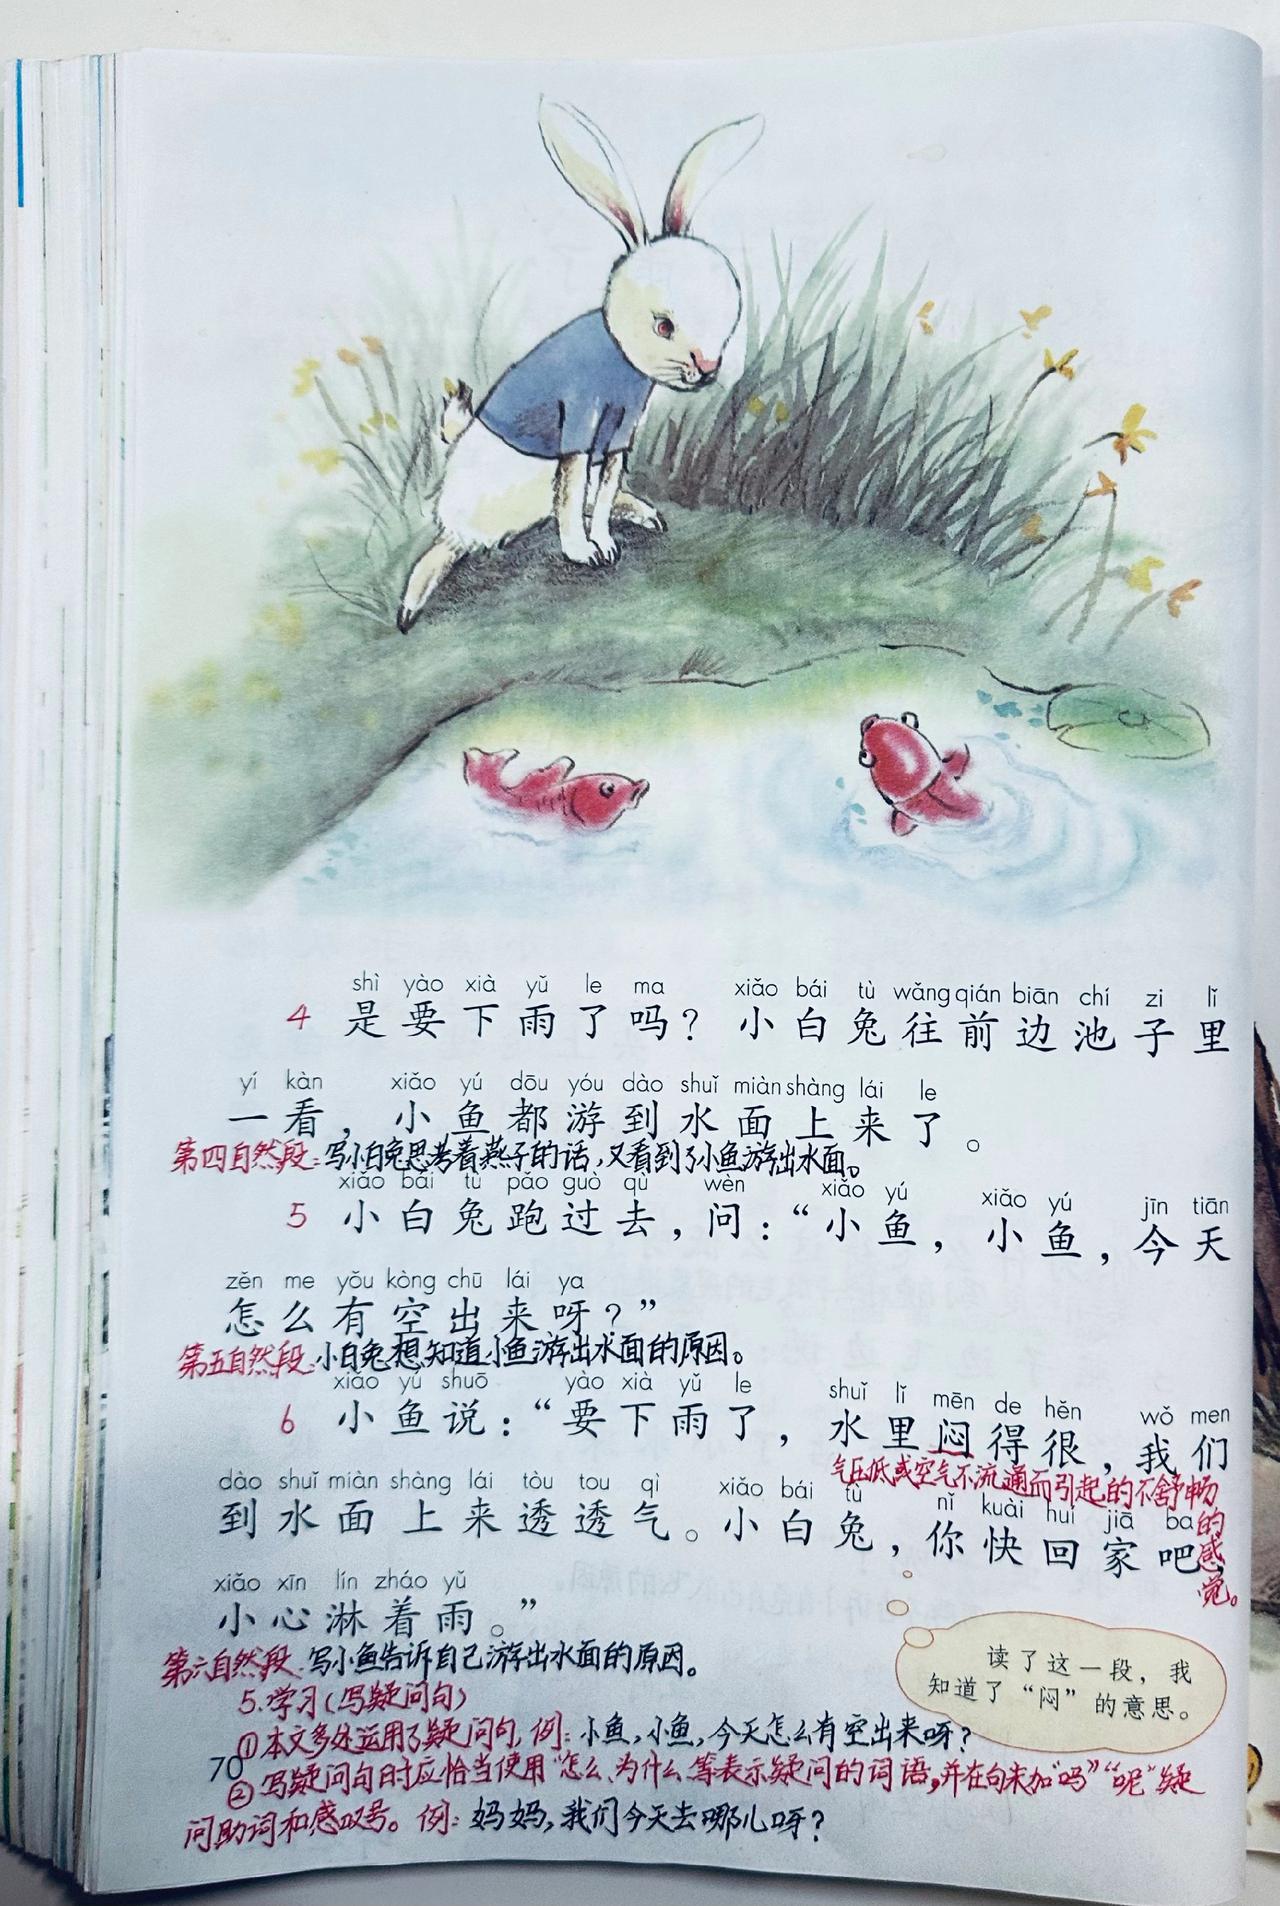 shì yào xià yǔ le ma xiǎo bái tù wǎng qián biān chí zi lǐ
4 是要下雨了吗？小白兔往前边池子里
yí kàn xiǎo yú dōu yóu dào shuǐ miàn shàng lái le
一看，小鱼都游到水面上来了。
第四自然段：写小白兔思考着燕子的话，又看到了小鱼游出水面。
xiǎo bái tù pǎo guò qù wèn xiǎo yú xiǎo yú jīn tiān
5 小白兔跑过去，问：“小鱼，小鱼，今天
zěn me yǒu kòng chū lái ya
怎么有空出来呀？”
第五自然段：小白兔想知道小鱼游出水面的原因。
xiǎo yú shuō yào xià yǔ le shuǐ lǐ mēn de hěn wǒ men
6 小鱼说：“要下雨了，水里闷得很，我们
气压低或空气不流通而引起的不舒畅的感觉。
dào shuǐ miàn shàng lái tòu tou qì xiǎo bái tù nǐ kuài huí jiā ba
到水面上来透透气。小白兔，你快回家吧，
xiǎo xīn lín zháo yǔ
小心淋着雨。”
第六自然段：写小鱼告诉自己游出水面的原因。
读了这一段，我
知道了“闷”的意思。
5.学习(写疑问句)
①本文多处运用了疑问句，例：小鱼，小鱼，今天怎么有空出来呀？
70
②写疑问句时应恰当使用“怎么、为什么”等表示疑问的词语，并在句末加“吗”“呢”疑
问助词和感叹号。例：妈妈，我们今天去哪儿呀？